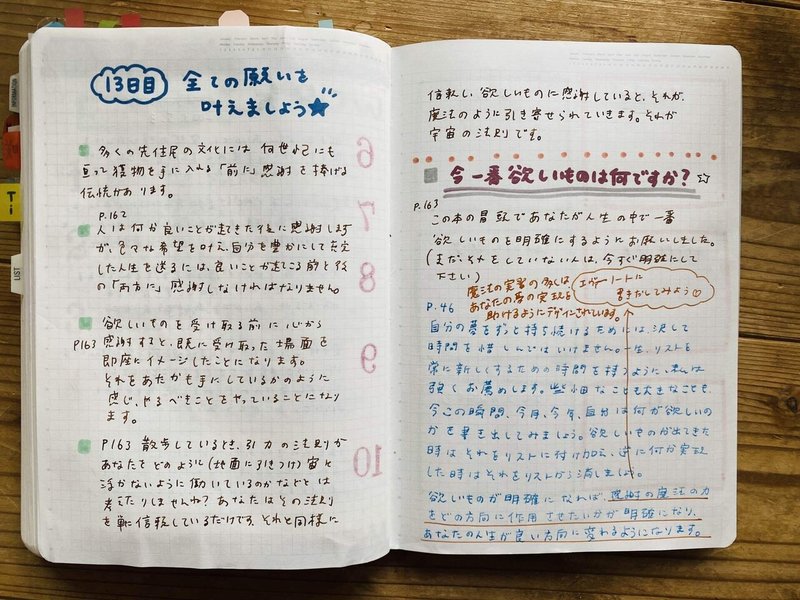 13日目 全ての願いを
叶えましょう
多くの先住民の文化には 何世紀にも
亘って獲物を手に入れる「前に」感謝を捧げる
伝統があります。
P.162
人は何か良いことが起きた後に感謝します
が、色々な希望を叶え、自分を豊かにして充実
した人生を送るには、良いことが起こる前と後
の「両方に」感謝しなければなりません。
欲しいものを受け取る前に心から
P163 感謝すると、既に受け取った場面を
即座にイメージしたことになります。
それをあたかも手にしているかのように
感じ、やるべきことをやっていることになり
ます。
P163 散歩しているとき、引力の法則が
あなたをどのように(地面に引きつけ)宙に
浮かないように働いているのかなどとは
考えたりしませんね?あなたはその法則
を単に信頼しているだけです。それと同様に
6
7
8
9
10
信頼し、欲しいものに感謝していると、それが、
魔法のように引き寄せられていきます。それが
宇宙の法則です。
今一番欲しいものは何ですか?
P.163
この本の冒頭であなたが人生の中で一番
欲しいものを明確にするようにお願いしました。
(まだ、それをしていない人は、今すぐ明確にして
下さい)
魔法の実習の多くは
あなたの夢の実現を
助けるようにデザインされています。
エヴァーノートに
書きだしてみよう♡
P.46
自分の夢をずっと持ち続けるためには、決して
時間を惜しんではいけません。一生、リストを
常に新しくするための時間を持つように、私は
強くお薦めします。些細なことも大きなことも、
今この瞬間、今月、今年、自分は何が欲しいの
かを書き出してみましょう。欲しいものが出てきた
時はそれをリストに付け加え、逆に何か実現
した時はそれをリストから消しましょう。
欲しいものが明確になれば、感謝の魔法の力
をどの方向に作用させたいかが明確になり、
あなたの人生が良い方向に変わるようになります。
Ti
LIST